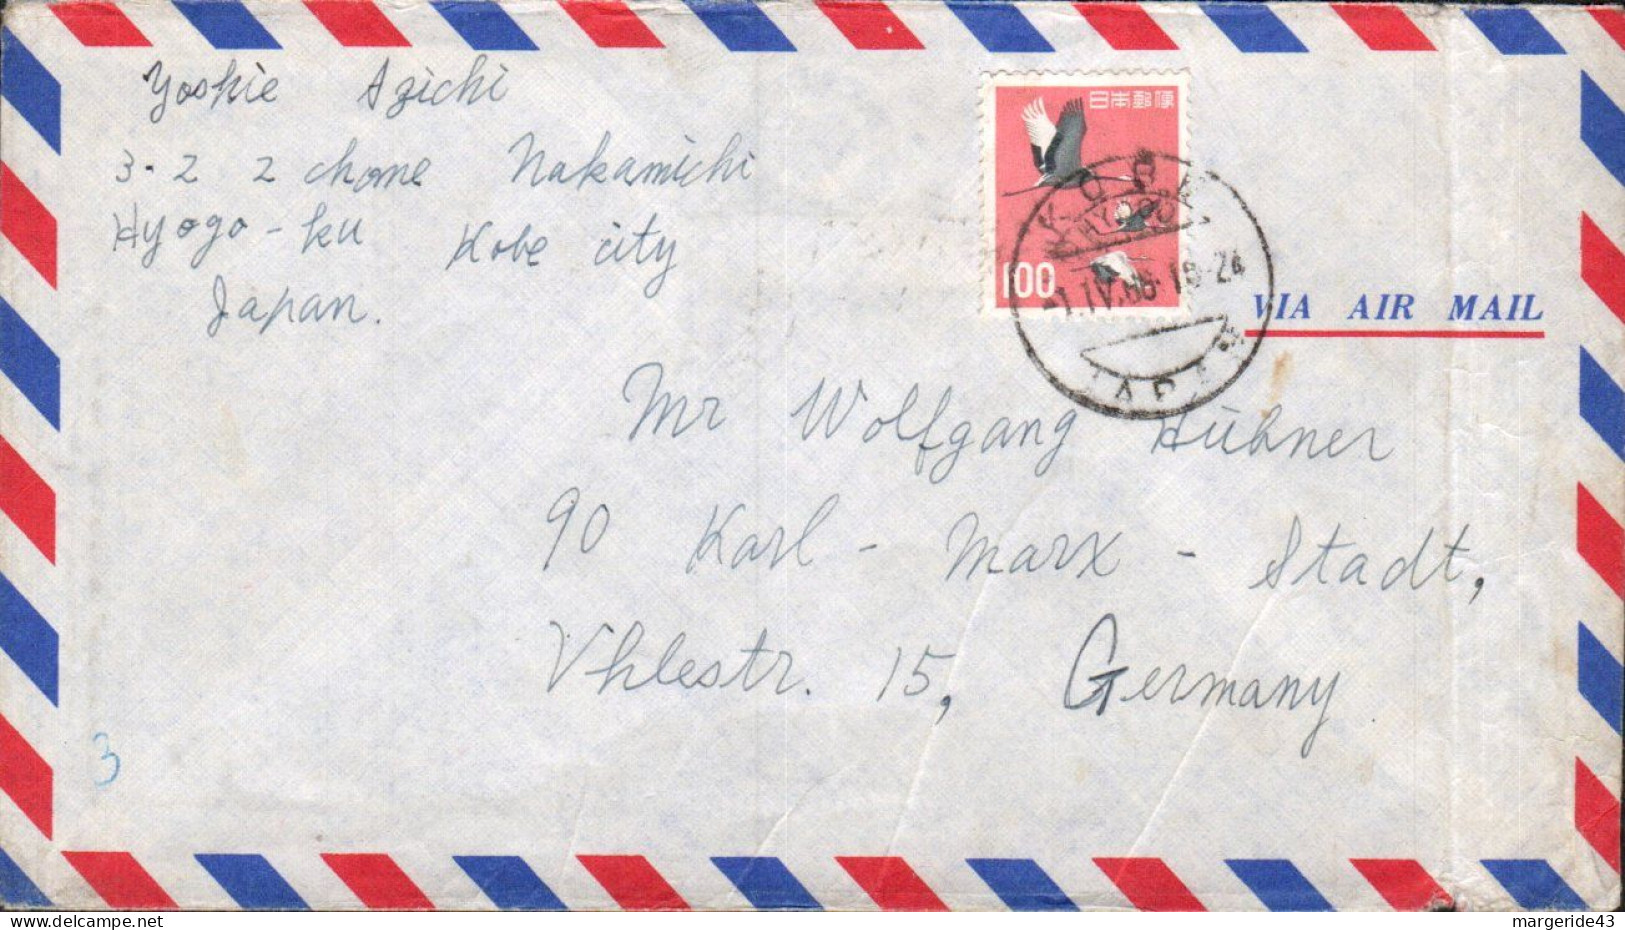 Yoshie Azichi
3-2 2 chome Nakamichi
Hyogo-ku Kobe city
Japan.
日本郵便
100
KOBE
HYOGO
1.IV.66.18-24
JAPAN
VIA AIR MAIL
Mr Wolfgang Hübner
90 Karl-Marx-Stadt,
Vhlestr. 15, Germany.
3
delcampe.net
margeride43